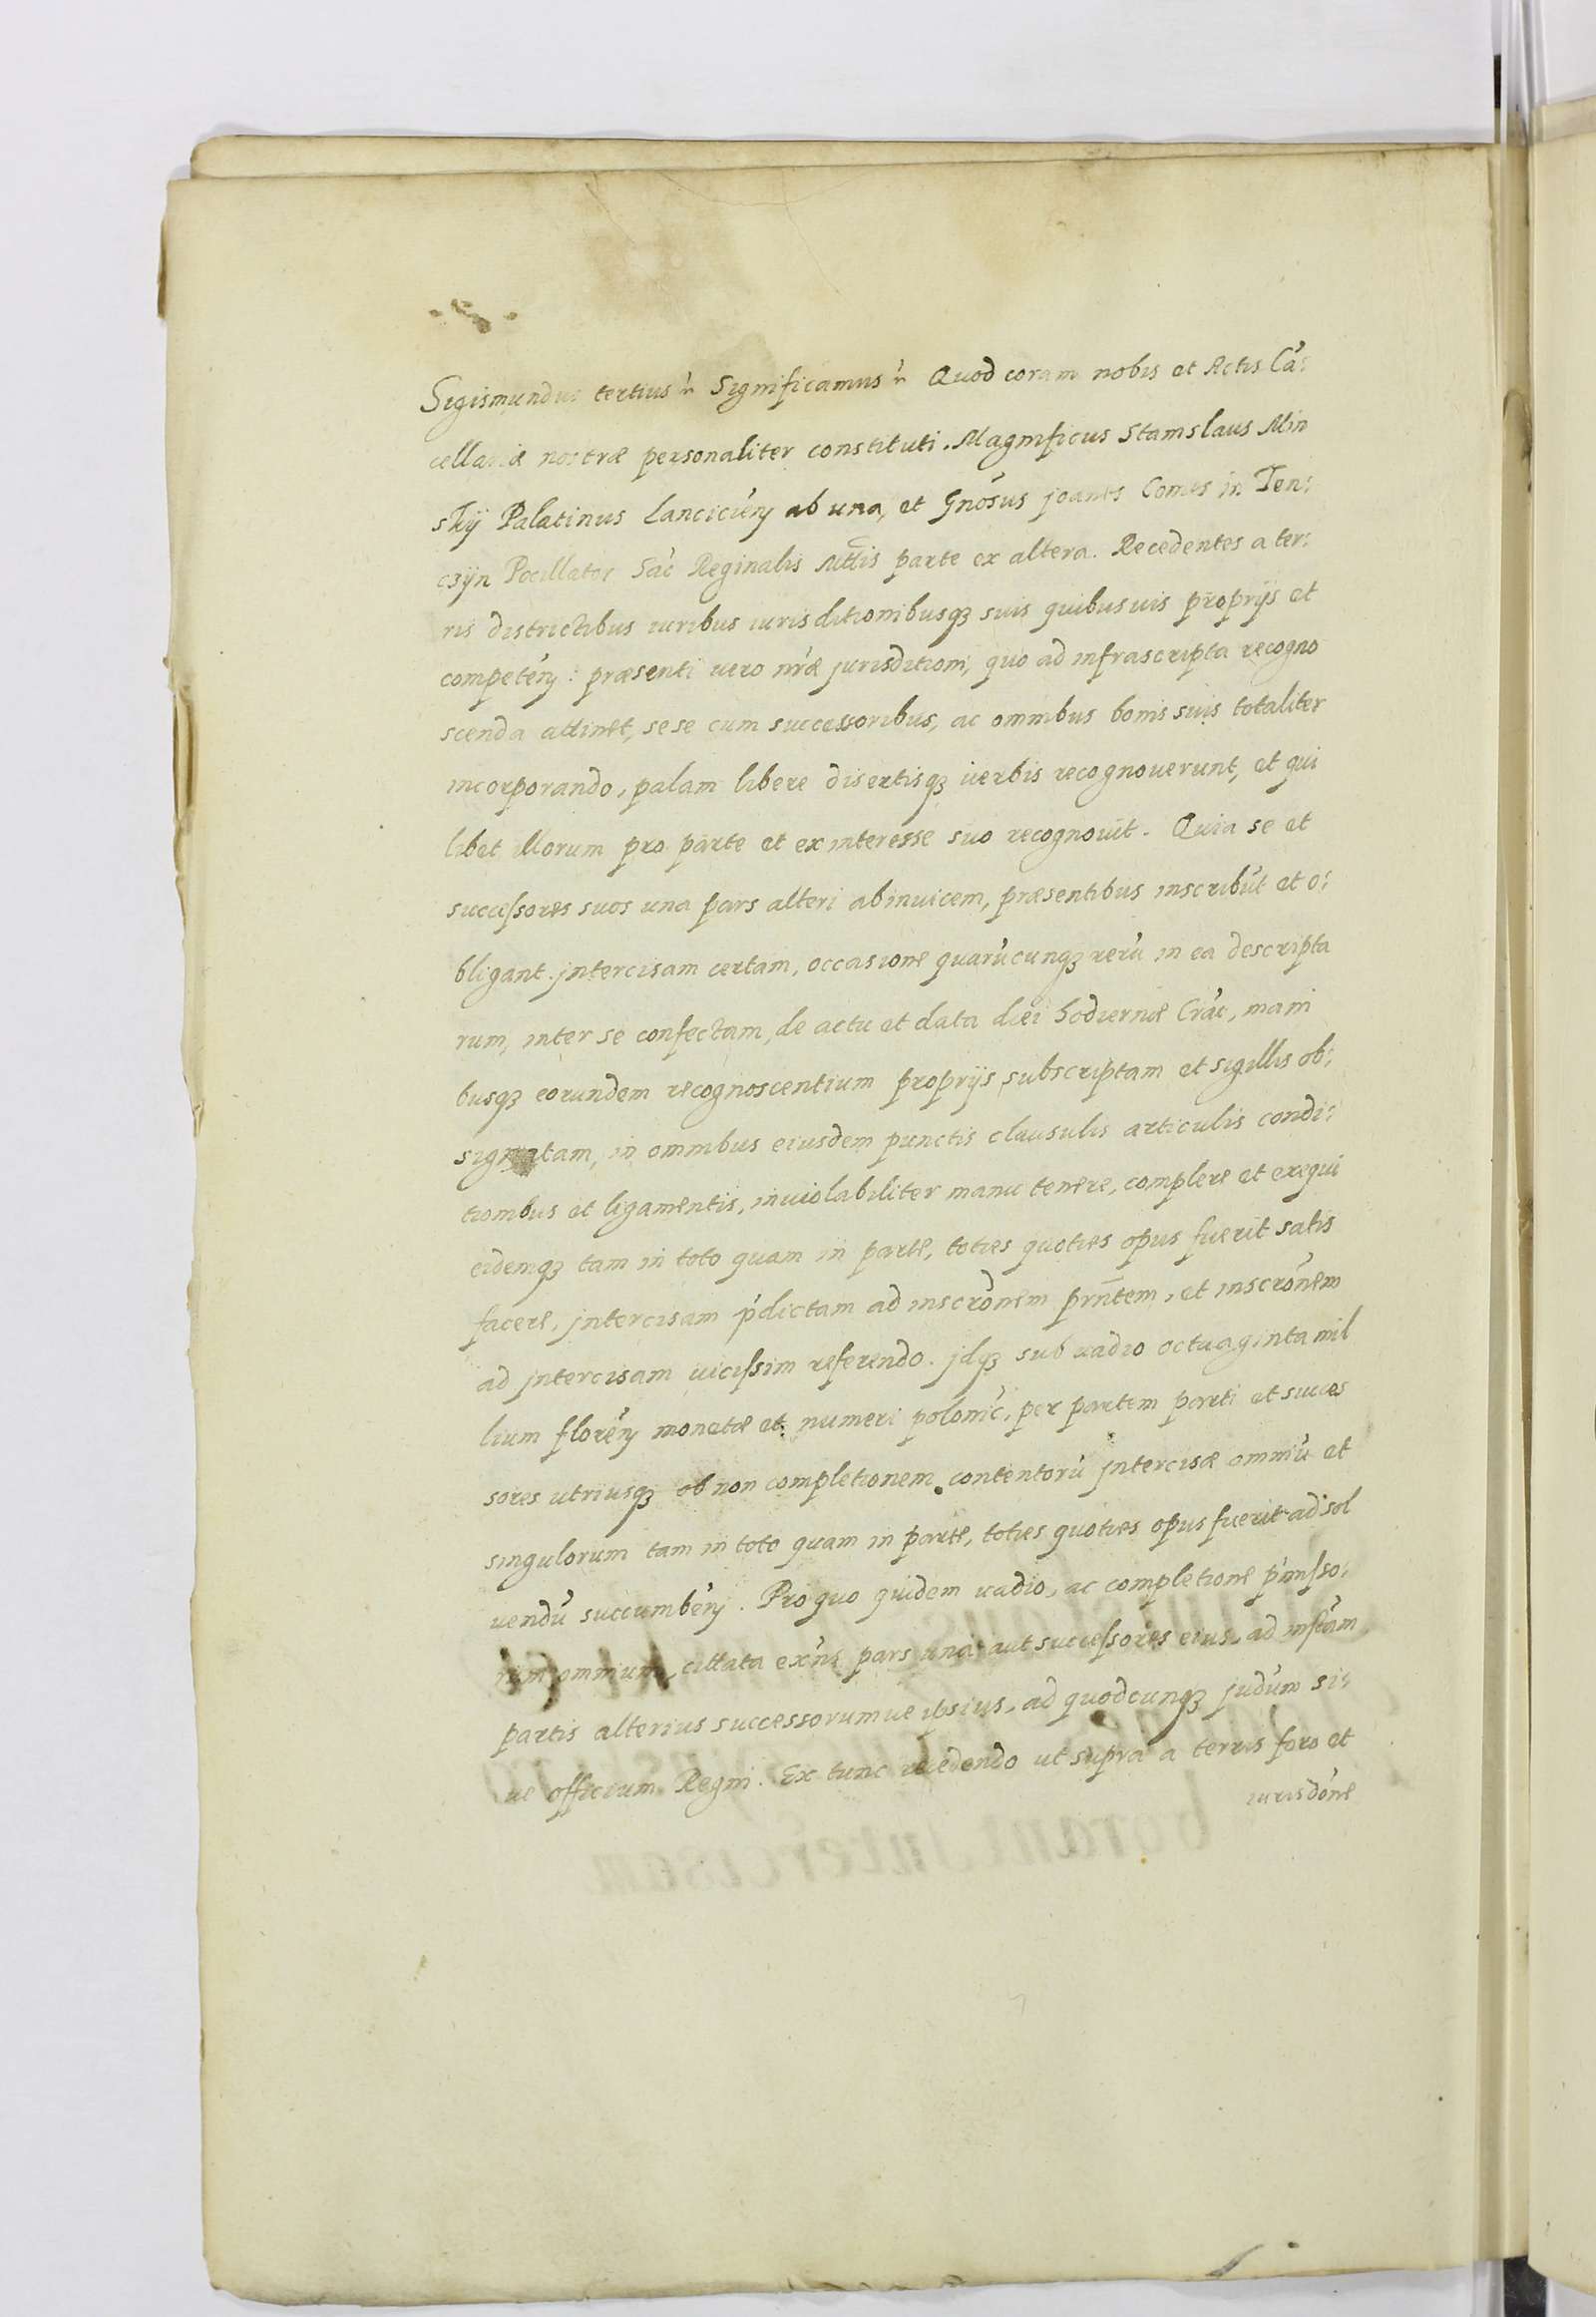 Sigismundus tertius etc Significamus etc Quod coram nobis et Actis Cā:
cellariæ nostræ personaliter constituti. Magnificus Stanislaus Min
skÿ Palatinus Lanciciēn ab una, et Gnōsus Joannes Comes in Ten:
czÿn Pocillator Sāc Reginalis Mttis parte ex altera. Recedentes a ter:
ris districtibus iuribus iurisditionibusq3 suis quibusuis proprÿs et
competēn: præsenti uero nr̄æ jurisditioni, quo ad infrascripta recogno
scenda attinet, sese cum successoribus, ac omnibus bonis suis totaliter
incorporando, palam libere disertisq3 uerbis recognouerunt, et qui
libet illorum pro parte et ex interesse suo recognouit. Quia se et
successores suos una pars alteri abinuicem, præsentibus inscribūt et o:
bligant. jntercisam certam, occasione quarūcunq3 rerū in ea descripta
rum, inter se confectam, de actu et data diei hodiernæ Crāc, mani
busq3 eorundem recognoscentium proprÿs subscriptam et sigillis ob:
signatam, in omnibus eiusdem punctis clausulis articulis condi:
tionibus et ligamentis, inuiolabiliter manu tenere, complere et exequi
eidemq3 tam in toto quam in parte, toties quoties opus fuerit satis
facere, jntercisam p̄dictam ad inscrōnem prn̄tem, et inscrōnem
ad jntercisam uicissim referendo. jdq3 sub uadio octuaginta mil
lium florēn monetæ et numeri polonic̄, per partem parti et succes
sores utriusq3 ob non completionem contentorū jntercisæ omniū et
singulorum tam in toto quam in parte, toties quoties opus fuerit ad sol
uendū succumbēn. Pro quo quidem uadio, ac completione p̄misso:
rum omnium, cittata exn̄s pars una aut successores eius, ad instām
partis alterius successorumue ipsius, ad quodcunq3 judūm si:
ue officium Regni. Ex tunc recedendo ut supra a terris foro et
iurisdōne